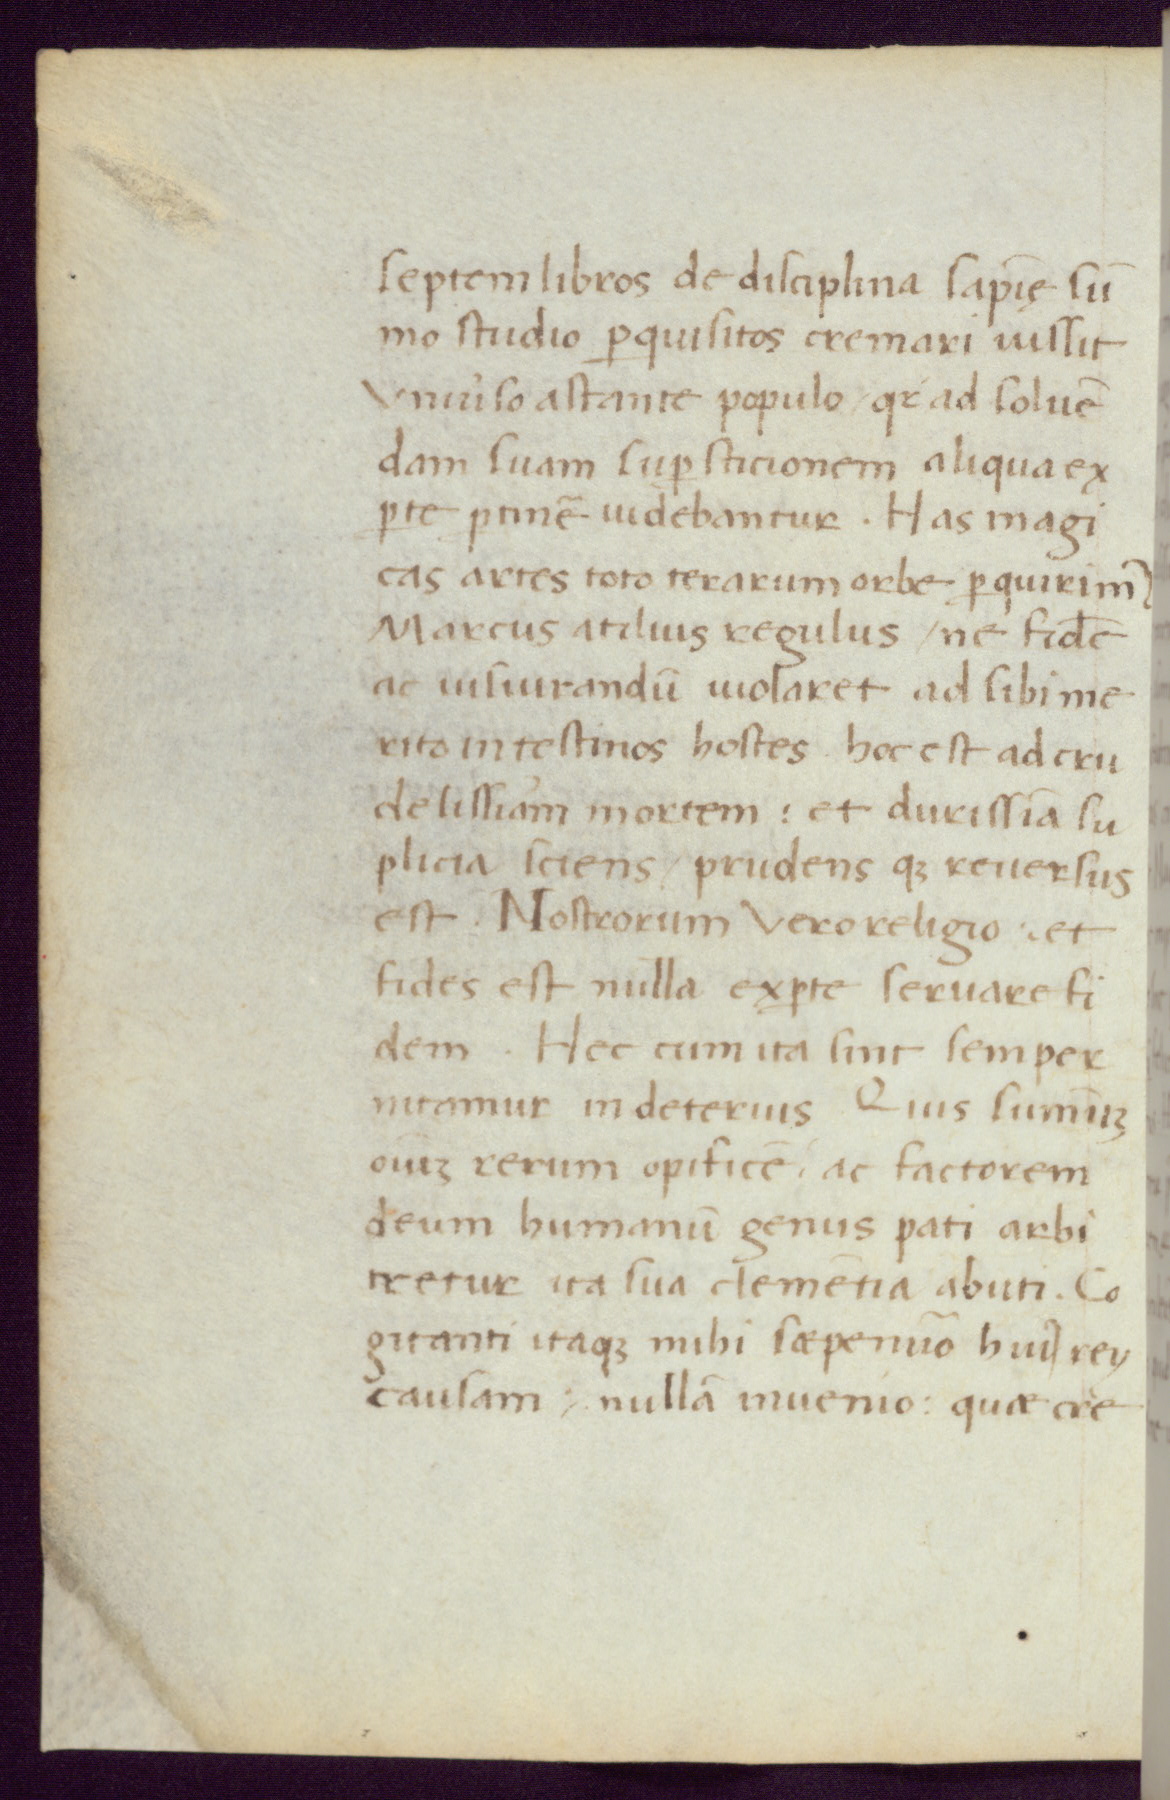 septem libros de disciplina sapīę sū
mo studio ꝑquisitos cremari iussit
Vniūso astante populo / qr ad soluē
dam suam suꝑsticionem aliqua ex
ꝑte ꝑtinē uidebantur . Has magi
cas artes toto terarum orbe ꝑquirimꝰ
Marcus atilius regulus / ne fidē
ac iusiurandū uiolaret ad sibi me
rito intestinos hostes . hoc est ad cru
delissiam mortem : et durissīa su
plicia sciens / prudens qꝫ reuersus
est . Nostrorum Vero religio : et
fides est nulla exꝑte seruare fi
dem . Hec cum ita sint semper
nitamur in deterius Quis sumūꝫ
oīuꝫ rerum opificē / ac factorem
deum humanū genus pati arbi
tretur ita sua clemētia abuti . Co
gitanti itaqꝫ mihi sæpenūo huiꝰ rey
causam ; nullā inuenio : quæ cre